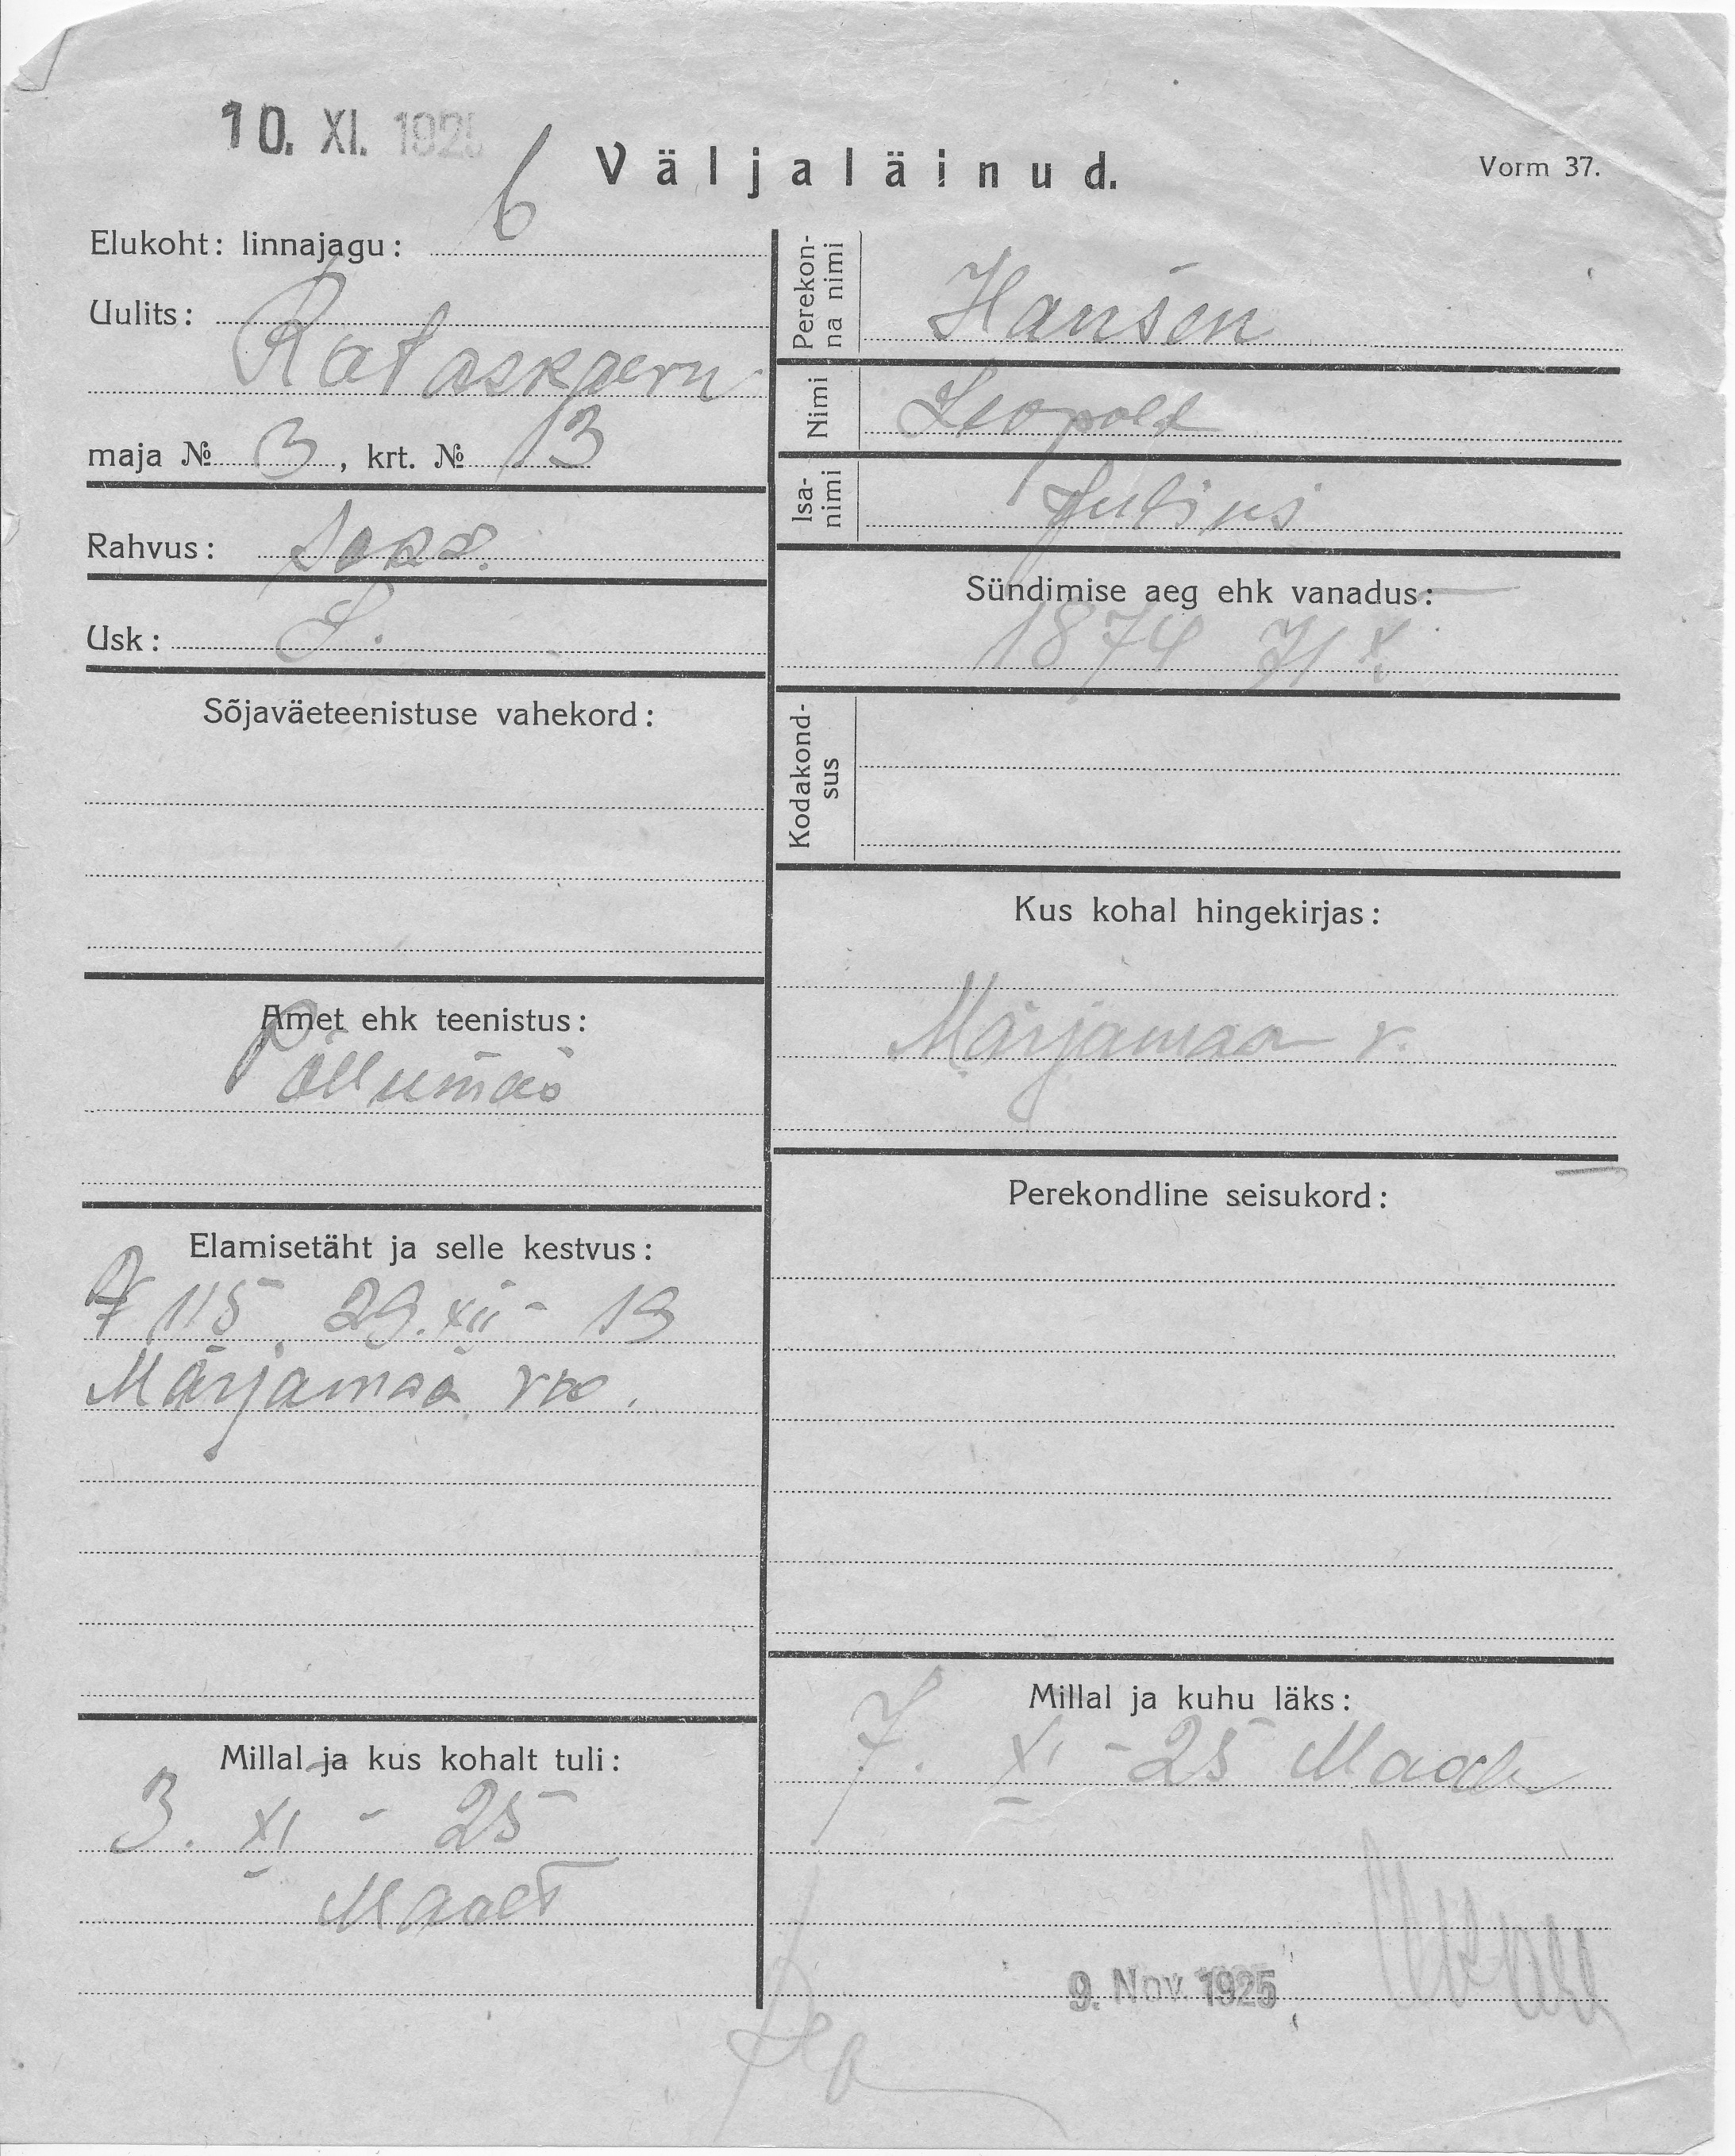 10. XI. 1925
Väljaläinud.
Vorm 37.
Elukoht: linnajagu: 6
Uulits:
Rataskaevu
maja № 3, krt. № 13
Rahvus: saks.
Usk: L.
Sõjaväeteenistuse vahekord:
Amet ehk teenistus:
Põllumees
Elamisetäht ja selle kestvus:
115 29. XII - 19
Märjamaa
Millal ja kus kohalt tuli:
3. XI - 25
Maalt
Perekon-
na nimi
Hansen
Nimi Leopold
Isa-
nimi
Julius
Sündimise aeg ehk vanadus:
1874
Kodakond-
sus
Kus kohal hingekirjas:
Märjamaa v.
Perekondline seisukord:
Millal ja kuhu läks:
7. XI - 25 Maale
9. Nov. 1925